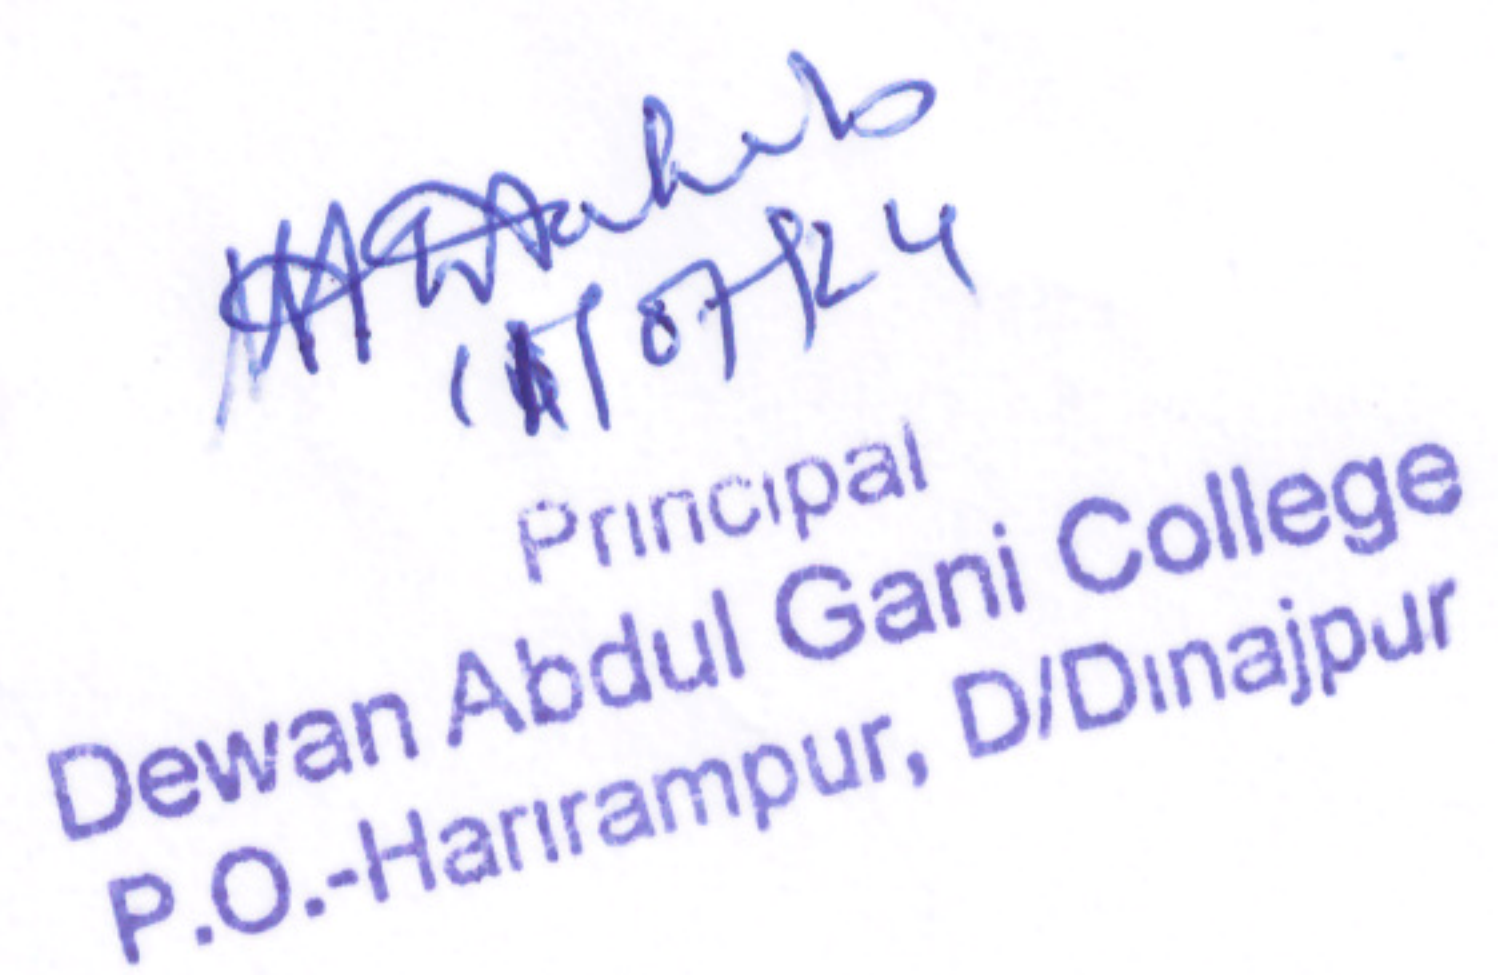 Wahab
/07/24
Principal
Dewan Abdul Gani College
P.O.-Harirampur, D/Dinajpur